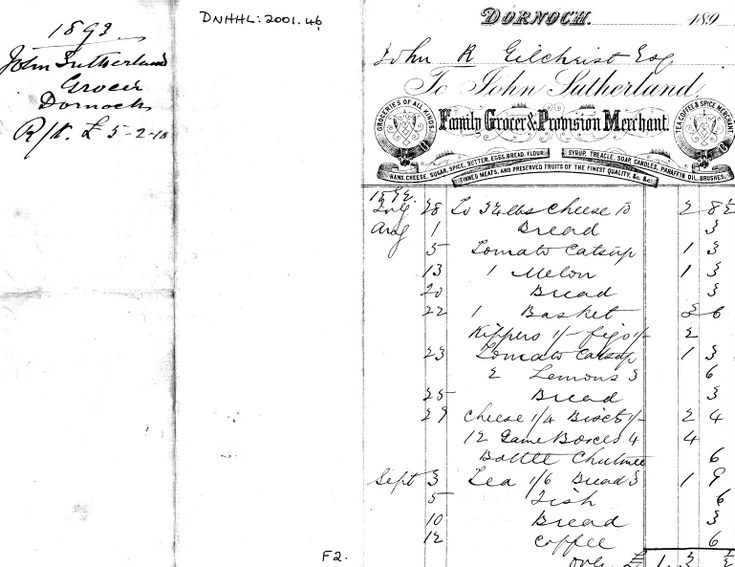 1893
John Sutherland
Grocer
Dornoch
R/d. £ 5-2-10
DNHHL:2001.46
F2.
DORNOCH. 189
John R Gilchrist Esq
To John Sutherland,
GROCERIES OF ALL KINDS
Family Grocer & Provision Merchant.
TEA COFFEE & SPICE MERCHANT
HAMS, CHEESE, SUGAR, SPICE, BUTTER, EGGS, BREAD, FLOUR,
SYRUP, TREACLE, SOAP, CANDLES, PARAFFIN OIL, BRUSHES,
TINNED MEATS, AND PRESERVED FRUITS OF THE FINEST QUALITY, &c. &c.
July 28 To 3¼lbs Cheese 10 2 8½
Aug 1 Bread 3
5 Tomato Catsup 1 3
13 1 Melon 1 3
20 Bread 3
22 1 Basket 2 6
Kippers 1/- figs 1/- 2
23 Tomato Catsup 1 3
2 Lemons 3 6
25 Bread 3
29 Cheese 1/4 Biscts 1/- 2 4
12 Game Boxes 4 4
Bottle Chutnee 6
Sept 3 Tea 1/6 Bread 3 1 9
5 Fish 6
10 Bread 3
12 Coffee 6
over £ 1 3